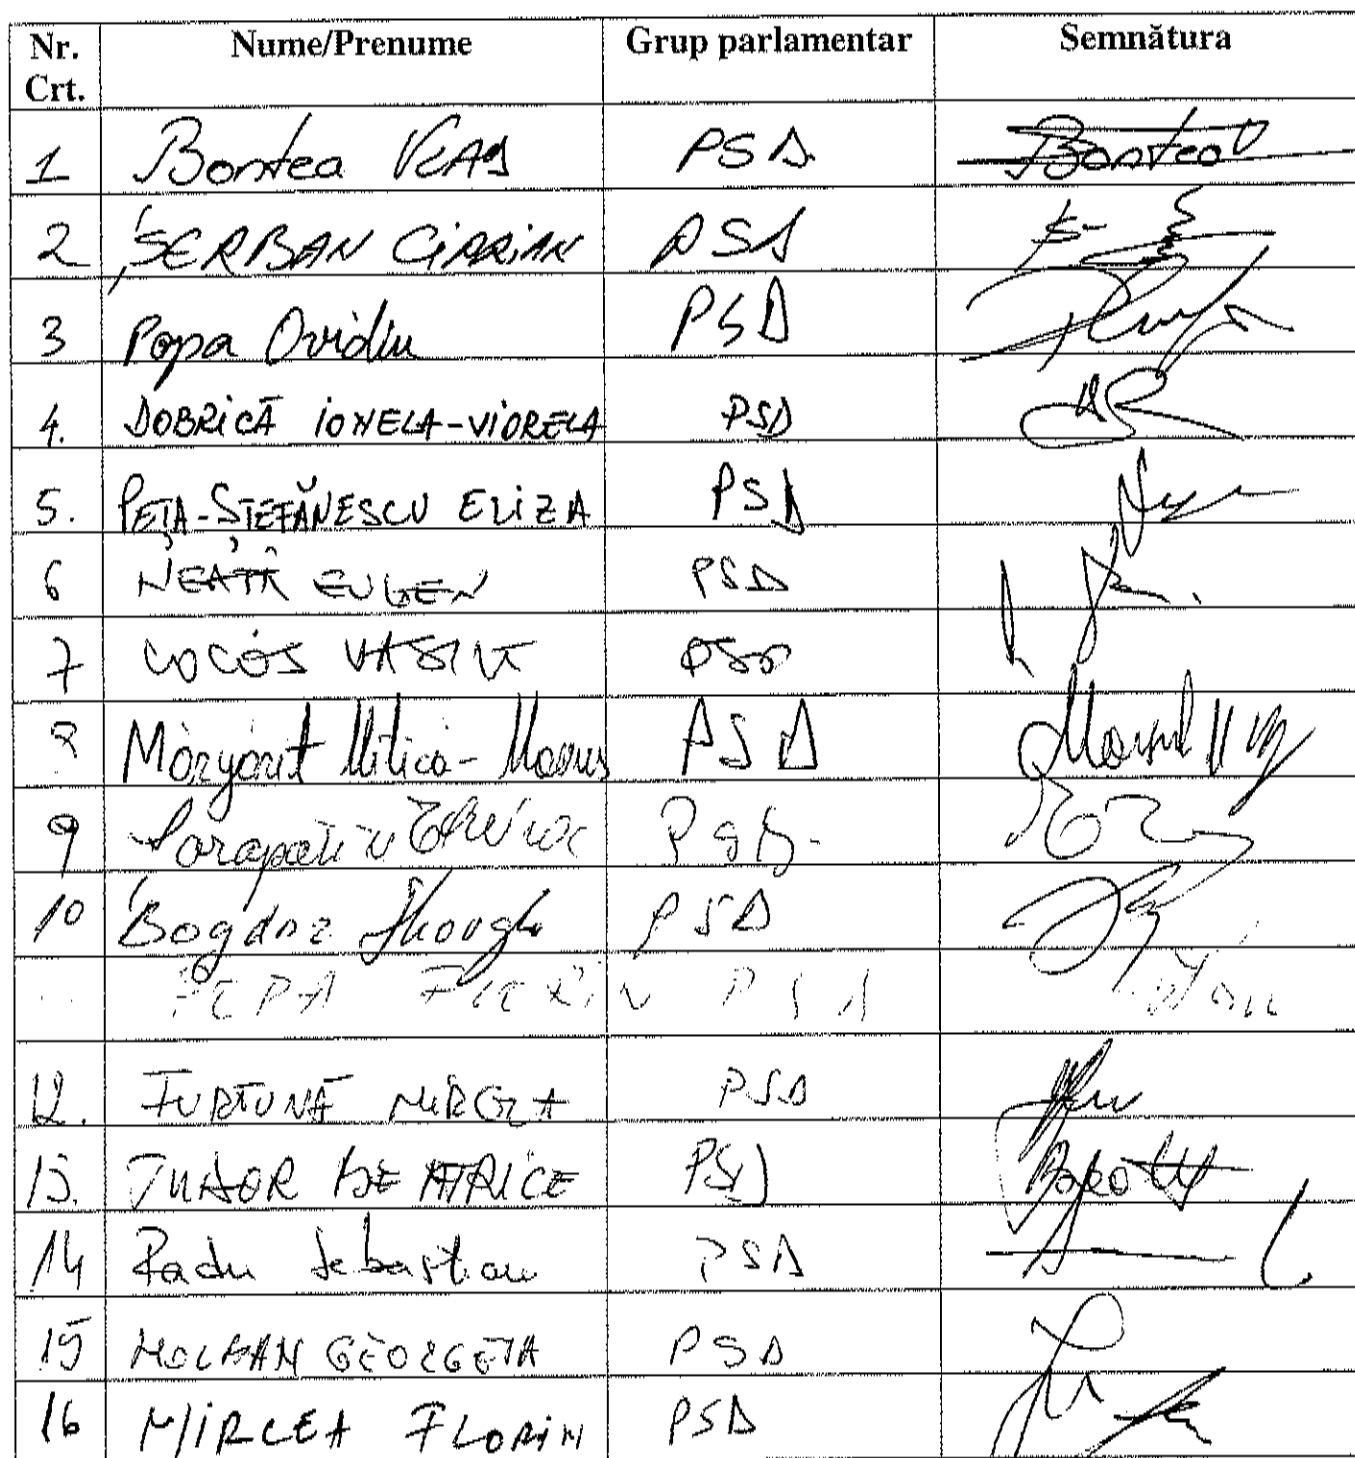 Nr. Crt. Nume/Prenume Grup parlamentar Semnătura
1 Bontea VLAD PSD Bontea
2 ȘERBAN CIPRIAN PSD
3 Popa Ovidiu PSD
4. DOBRICĂ IONELA-VIORELA PSD
5. PEȚA-ȘTEFĂNESCU ELIZA PSD
6 NEATĂ EUGEN PSD
7 COCOȘ VASILE PSD
8 Mărgărit Mitică-Marius PSD
9 PSD
10 Bogdan Gheorghe PSD
PEPA FLORIN PSD
12. FURTUNĂ MIRELA PSD
13. TUDOR BEATRICE PSD
14 Radu Sebastian PSD
15 MOLEAN GEORGETA PSD
16 MIRCEA FLORIN PSD